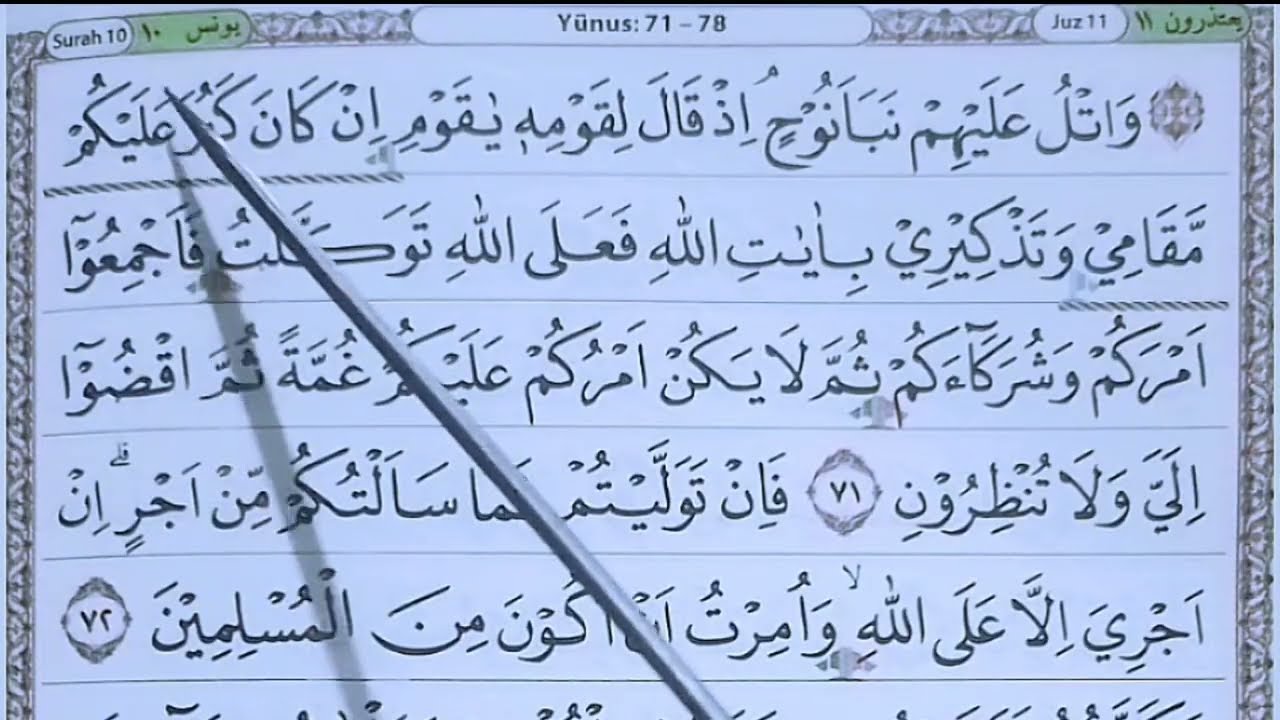 Surah 10 يونس ١٠ Yūnus: 71 – 78 Juz 11 يعتذرون ١١
وَاتْلُ عَلَيْهِمْ نَبَاَ نُوْحٍۘ اِذْ قَالَ لِقَوْمِهٖ يٰقَوْمِ اِنْ كَانَ كَبُرَ عَلَيْكُمْ
مَّقَامِيْ وَتَذْكِيْرِيْ بِاٰيٰتِ اللّٰهِ فَعَلَى اللّٰهِ تَوَكَّلْتُ فَاَجْمِعُوْٓا
اَمْرَكُمْ وَشُرَكَاۤءَكُمْ ثُمَّ لَا يَكُنْ اَمْرُكُمْ عَلَيْكُمْ غُمَّةً ثُمَّ اقْضُوْٓا
اِلَيَّ وَلَا تُنْظِرُوْنِ ٧١ فَاِنْ تَوَلَّيْتُمْ فَمَا سَاَلْتُكُمْ مِّنْ اَجْرٍۗ اِنْ
اَجْرِيَ اِلَّا عَلَى اللّٰهِ ۙوَاُمِرْتُ اَنْ اَكُوْنَ مِنَ الْمُسْلِمِيْنَ ٧٢